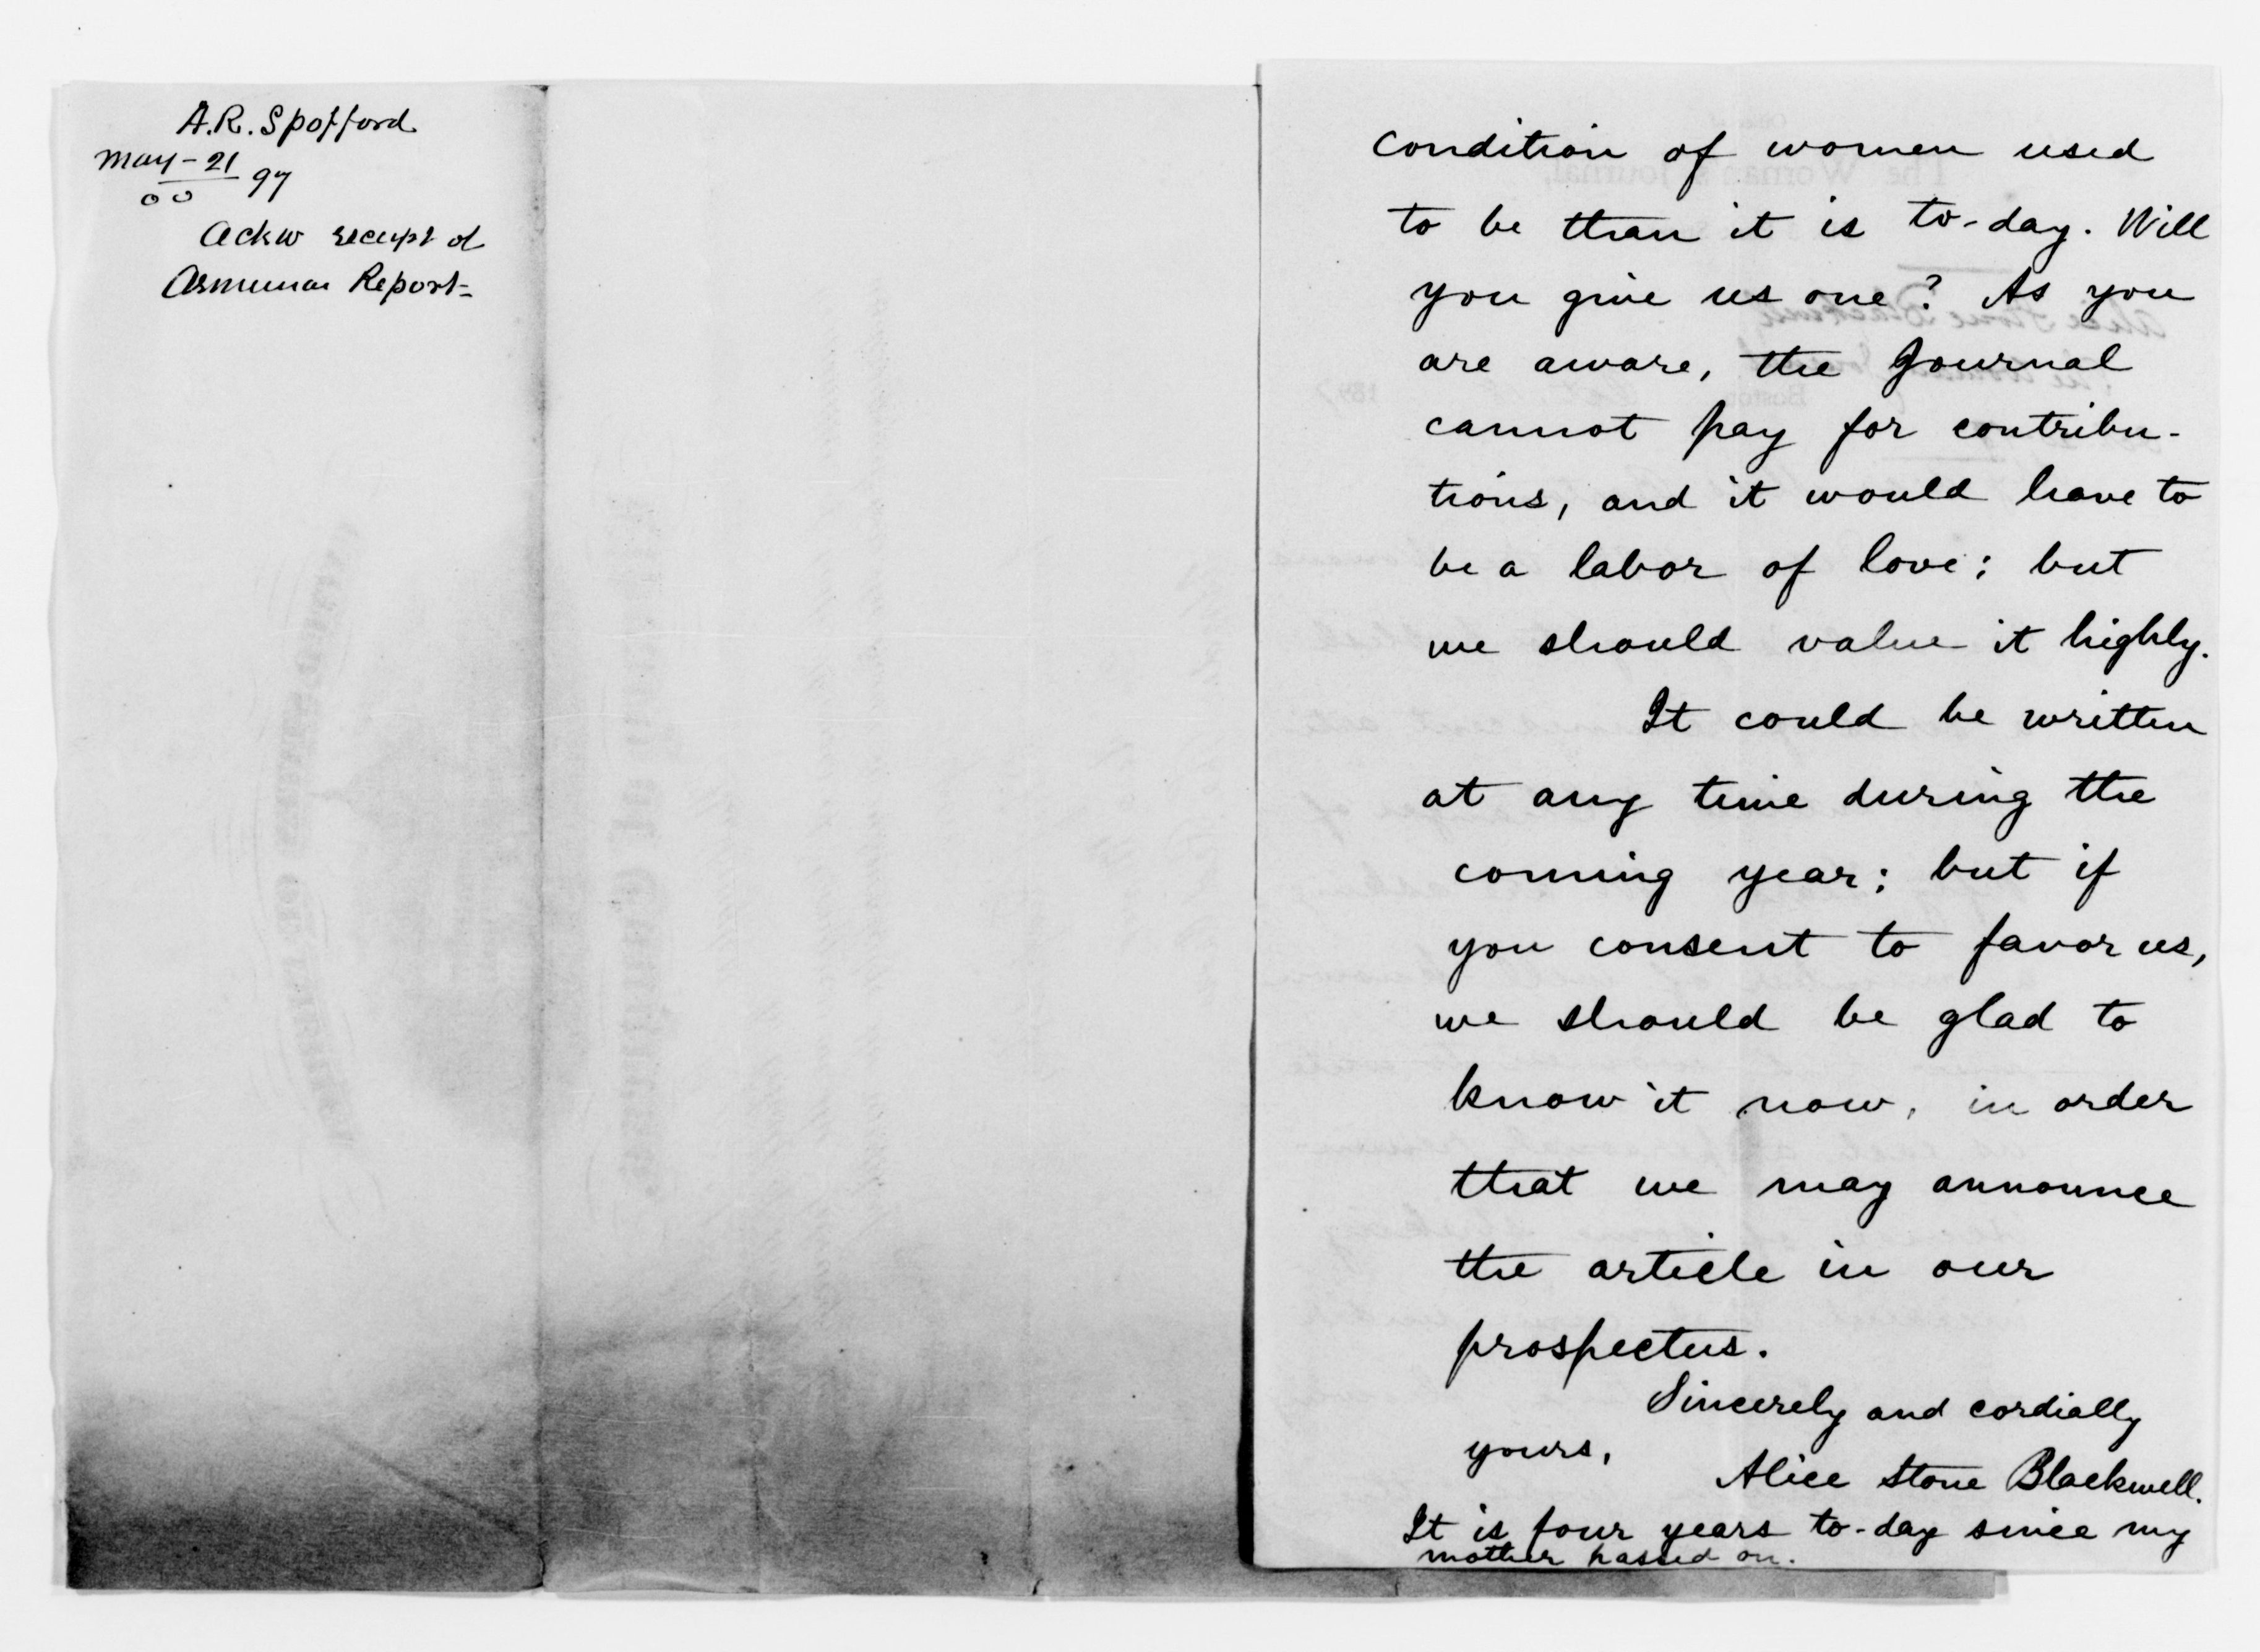 A.R. Spofford
May - 21
97
Ackw receipt of
Armenian Report -
condition of women used
to be than it is to-day. Will
you give us one? As you
are aware, the Journal
cannot pay for contribu-
tions, and it would have to
be a labor of love; but
we should value it highly.
It could be written
at any time during the
coming year; but if
you consent to favor us,
we should be glad to
know it now, in order
that we may announce
the article in our
prospectus.
Sincerely and cordially
yours,
Alice Stone Blackwell.
It is four years to-day since my
mother passed on.